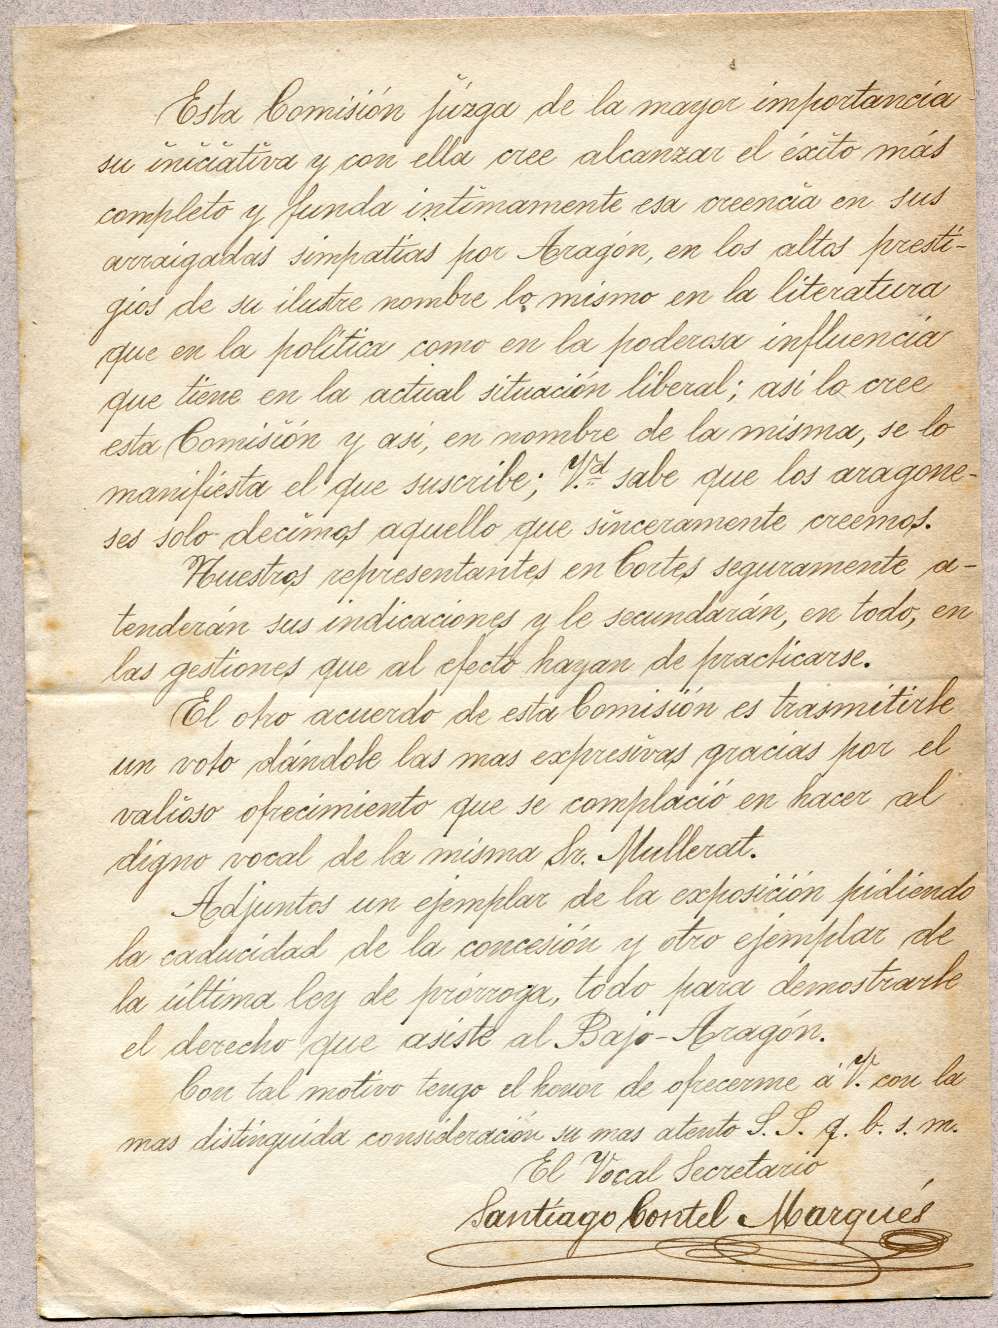 Esta Comisión júzga de la mayor importancia
su iniciativa y con ella cree alcanzar el éxito más
completo y funda intimamente esa creencia en sus
arraigadas simpatías por Aragón, en los altos presti-
gios de su ilustre nombre lo mismo en la literatura
que en la política como en la poderosa influencia
que tiene en la actual situación liberal; asi lo cree
esta Comisión y asi, en nombre de la misma, se lo
manifiesta el que suscribe; V.d sabe que los aragone-
ses solo decimos aquello que sinceramente creemos.
Nuestros representantes en Cortes seguramente a-
tenderán sus indicaciones y le secundarán, en todo, en
las gestiones que al efecto hayan de practicarse.
El otro acuerdo de esta Comisión es trasmitirle
un voto dándole las mas expresivas gracias por el
valioso ofrecimiento que se complació en hacer al
digno vocal de la misma Sr. Mullerat.
Adjuntos un ejemplar de la exposición pidiendo
la caducidad de la concesión y otro ejemplar de
la última ley de prórroga, todo para demostrarle
el derecho que asiste al Bajo-Aragón.
Con tal motivo tengo el honor de ofrecerme á V. con la
mas distinguida consideración su mas atento S. S. q. b. s. m.
El Vocal Secretario
Santiago Contel Marqués